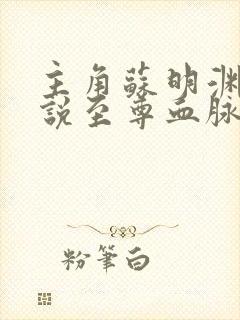 主角蘇明淵
說至尊血脉
粉筆白